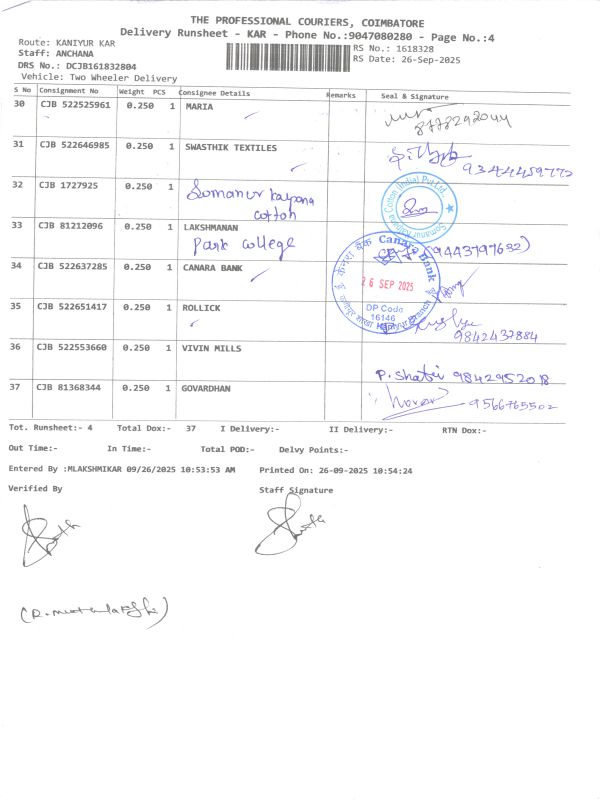 THE PROFESSIONAL COURIERS, COIMBATORE
Delivery Runsheet - KAR - Phone No.:9047080280 - Page No.:4
Route: KANIYUR KAR
Staff: ANCHANA
DRS No.: DCJB161832804
Vehicle: Two Wheeler Delivery
RS No.: 1618328
RS Date: 26-Sep-2025
S No Consignment No Weight PCS Consignee Details Remarks Seal & Signature
30 CJB 522525961 0.250 1 MARIA
8778292044
31 CJB 522646985 0.250 1 SWASTHIK TEXTILES
9344459772
32 CJB 1727925 0.250 1 Somanur kalpana
cotton
Somanur Kalpana Cotton (India) Pvt Ltd.
33 CJB 81212096 0.250 1 LAKSHMANAN
Park college
(9443797632)
34 CJB 522637285 0.250 1 CANARA BANK
केनरा बैंक Canara Bank
26 SEP 2025
DP Code
16146
Kaniyur Branch
35 CJB 522651417 0.250 1 ROLLICK
9842437884
36 CJB 522553660 0.250 1 VIVIN MILLS
P. Shabi 9842952018
37 CJB 81368344 0.250 1 GOVARDHAN
9566765502
Tot. Runsheet:- 4 Total Dox:- 37 I Delivery:- II Delivery:- RTN Dox:-
Out Time:- In Time:- Total POD:- Delvy Points:-
Entered By :MLAKSHMIKAR 09/26/2025 10:53:53 AM Printed On: 26-09-2025 10:54:24
Verified By Staff Signature